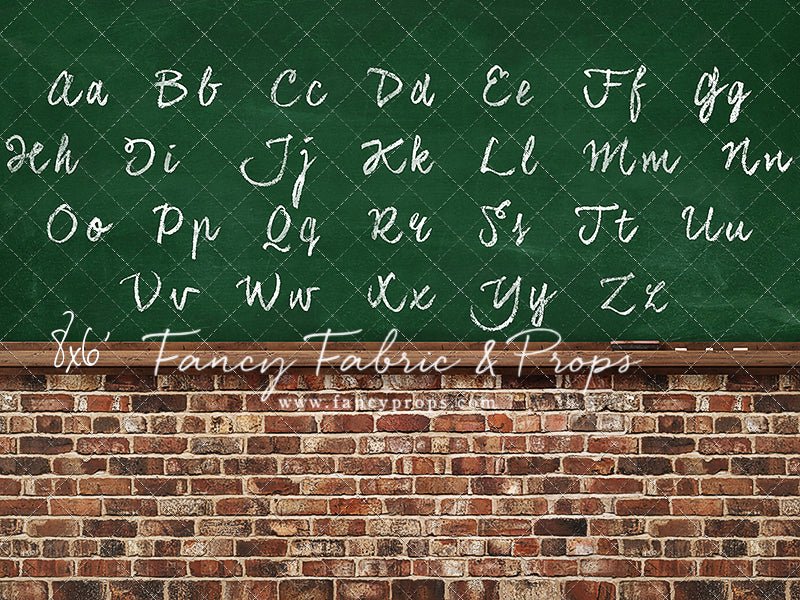 Aa Bb Cc Dd Ee Ff Gg
Hh Ii Jj Kk Ll Mm Nn
Oo Pp Qq Rr Ss Tt Uu
Vv Ww Xx Yy Zz
8x6' Fancy Fabric & Props
www.fancyprops.com